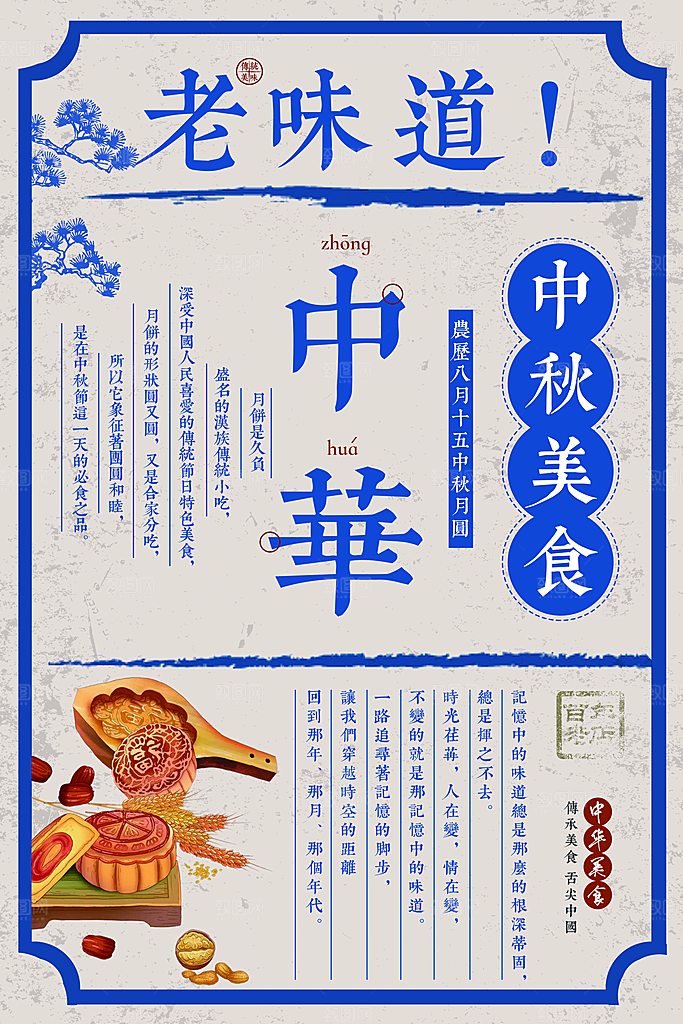 老味道！
傳統
美味
zhōng
中
huá
華
中秋美食
農歷八月十五中秋月圓
月餅是久負
盛名的漢族傳統小吃，
深受中國人民喜愛的傳統節日特色美食，
月餅的形狀圓又圓，又是合家分吃，
所以它象征著團圓和睦，
是在中秋節這一天的必食之品。
記憶中的味道總是那麼的根深蒂固，
總是揮之不去。
時光荏苒，人在變，情在變，
不變的就是那記憶中的味道。
一路追尋著記憶的脚步，
讓我們穿越時空的距離
回到那年、那月、那個年代。
中华美食
傳承美食 舌尖中國